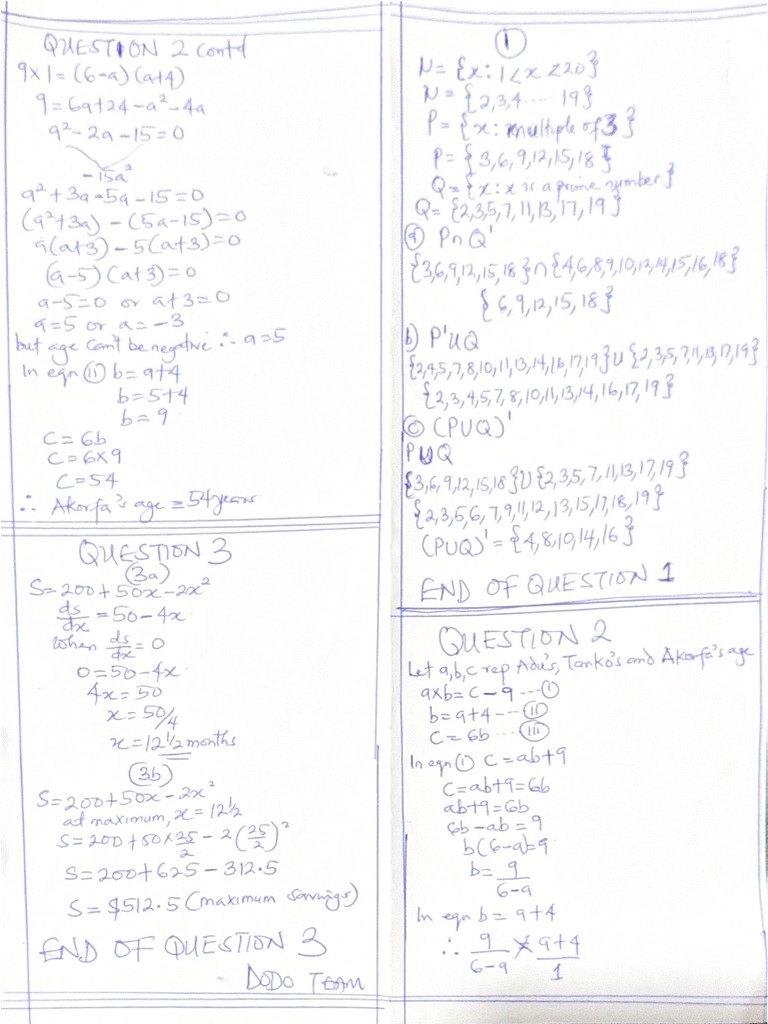 ①
N = {x: 1 < x < 20}
N = {2,3,4 ..... 19}
P = {x: multiple of 3}
P = {3,6,9,12,15,18}
Q = {x: x is a prime number}
Q = {2,3,5,7,11,13,17,19}
ⓐ P∩Q'
{3,6,9,12,15,18}∩{4,6,8,9,10,12,14,15,16,18}
{6,9,12,15,18}
b) P'UQ
{2,4,5,7,8,10,11,13,14,16,17,19}U{2,3,5,7,11,13,17,19}
{2,3,4,5,7,8,10,11,13,14,16,17,19}
ⓒ (PUQ)'
PUQ
{3,6,9,12,15,18}U{2,3,5,7,11,13,17,19}
{2,3,5,6,7,9,11,12,13,15,17,18,19}
(PUQ)' = {4,8,10,14,16}
END OF QUESTION 1
QUESTION 2
Let a,b,c rep Adu's, Tanko's and Akorfa's age
axb = c - 9 --- ⓘ
b = a+4 --- ⓘⓘ
c = 6b --- ⓘⓘⓘ
In eqn ⓘ c = ab+9
c = ab+9 = 6b
ab+9 = 6b
6b - ab = 9
b(6-a) = 9
b = 9/6-a
In eqn b = a+4
∴ 9/6-a = a+4/1
QUESTION 2 contd
9x1 = (6-a)(a+4)
9 = 6a+24-a²-4a
a²-2a-15=0
-15a²
a²+3a-5a-15=0
(a²+3a)-(5a-15)=0
a(a+3)-5(a+3)=0
(a-5)(a+3)=0
a-5=0 or a+3=0
a=5 or a=-3
but age can't be negative ∴ a=5
In eqn ⓘⓘ b = a+4
b = 5+4
b = 9
C = 6b
C = 6x9
C = 54
∴ Akorfa's age = 54years
QUESTION 3
(3a)
S = 200+50x-2x²
ds/dx = 50-4x
When ds/dx = 0
0 = 50-4x
4x = 50
x = 50/4
x = 12 1/2 months
(3b)
S = 200+50x-2x²
at maximum, x = 12 1/2
S = 200+50x 25/2 - 2(25/2)²
S = 200+625-312.5
S = $512.5 (maximum savings)
END OF QUESTION 3
DODO TEAM